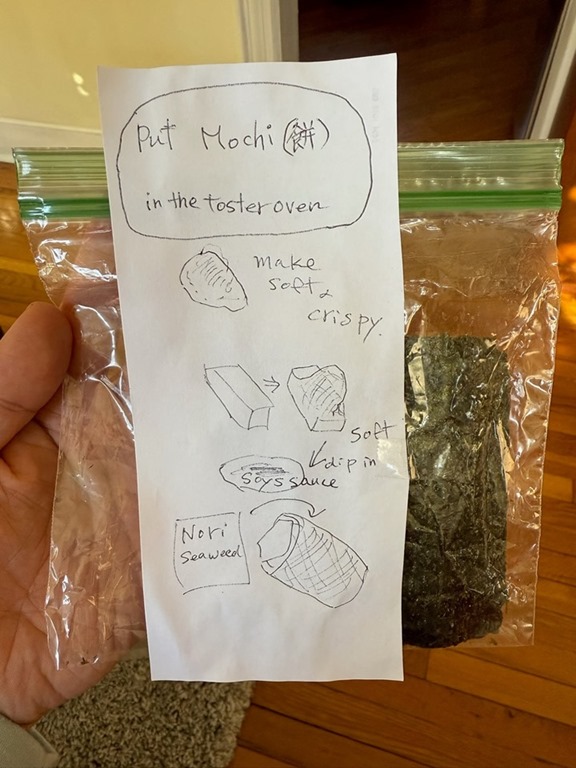 Put Mochi (餅)
in the toster oven
make
soft &
crispy.
soft
dip in
soys sauce
Nori
seaweed